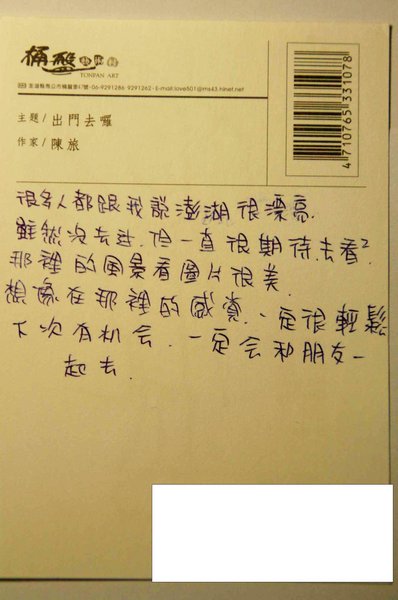 桶盤藝術村
TONPAN ART
澎湖縣馬公市桶盤里47號・06-9291286 9291262・E-mail:love501@ms43.hinet.net
主題/出門去囉
作家/陳旅
4710765331078
很多人都跟我說澎湖很漂亮.
雖然沒去過,但一直很期待去看看
那裡的風景看圖片很美.
想像在那裡的感覺,一定很輕鬆
下次有机会,一定会和朋友一
起去.